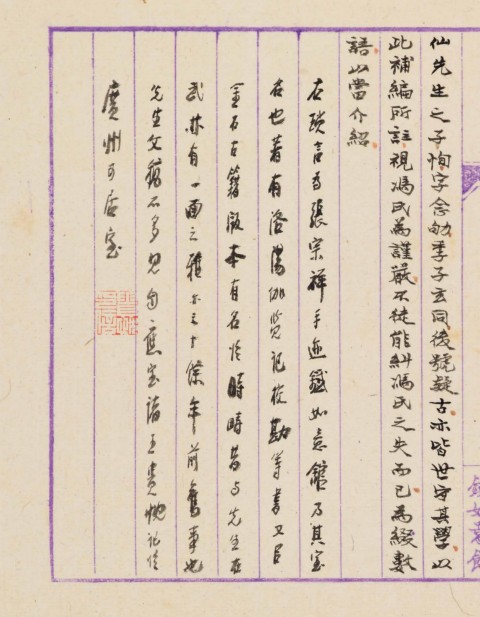 仙先生之子恂字念劬季子玄同後號疑古亦皆世守其學以
此補編所註視馮氏為謹嚴不徒能糾馮氏之失而已為綴數
語以當介紹
右瑣言為張宗祥手迹鐵如意館乃其室
名也著有洛陽伽藍記校勘等書又自
金石古籍版本有名於時時昔与先生在
武林有一面之雅今三十餘年前舊事也
先生文稿不多見自應寶諸
廣州可居室
鐵如意館